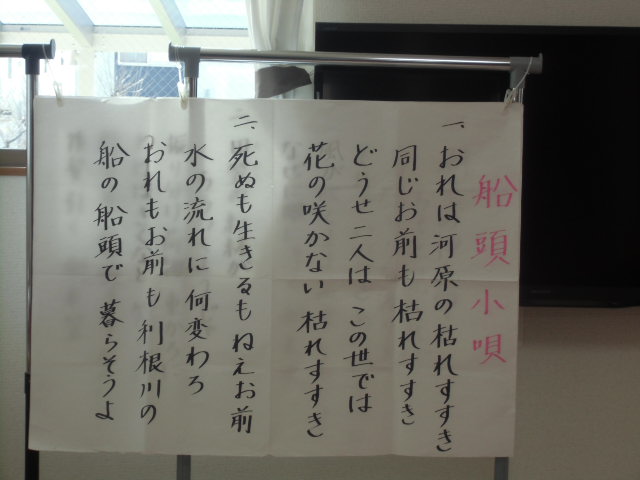 船頭小唄
一、おれは河原の枯れすすき
同じお前も枯れすすき
どうせ二人は この世では
花の咲かない 枯れすすき
二、死ぬも生きるもねえお前
水の流れに 何変わろ
おれもお前も利根川の
船の船頭で 暮らそうよ